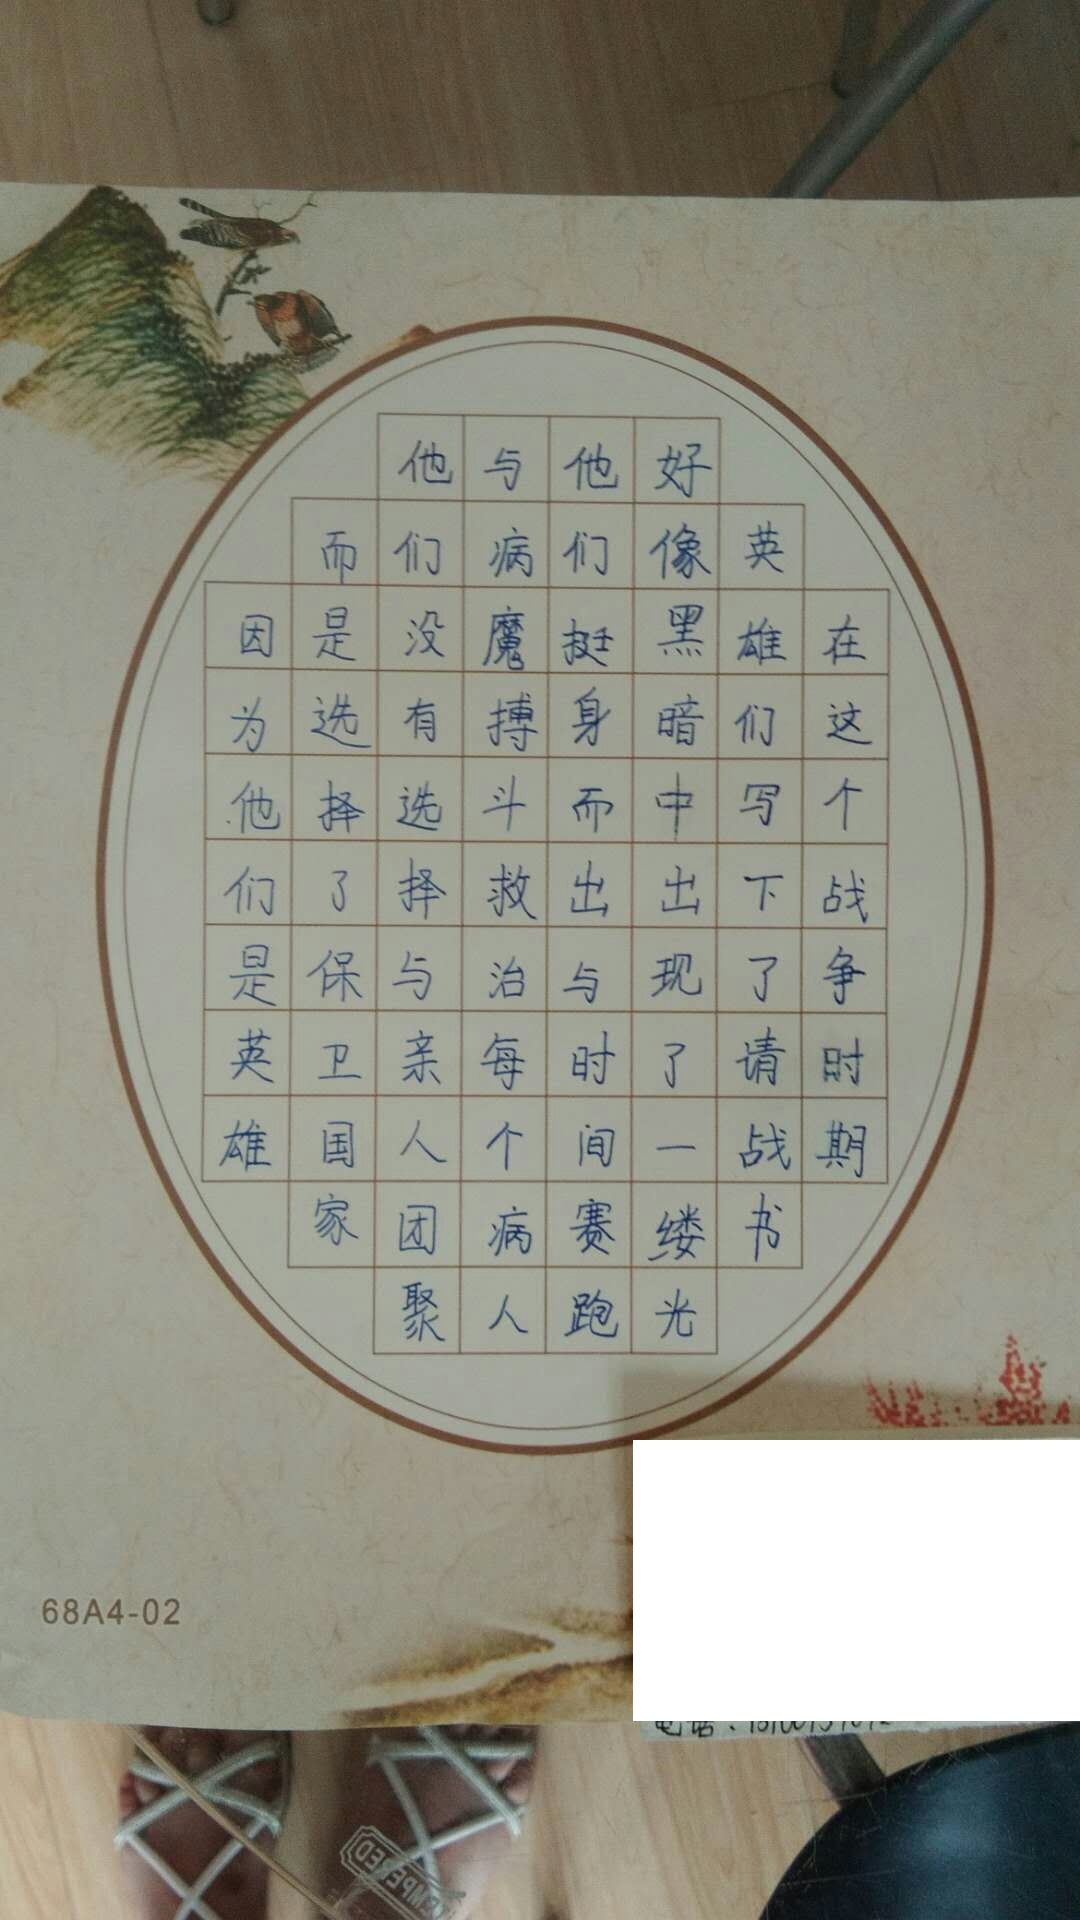 在这个战争时期
英雄们写下了请战书
好像黑暗中出现了一缕光
他们挺身而出与时间赛跑
与病魔搏斗救治每个病人
他们没有选择与亲人团聚
而是选择了保卫国家
因为他们是英雄
68A4-02